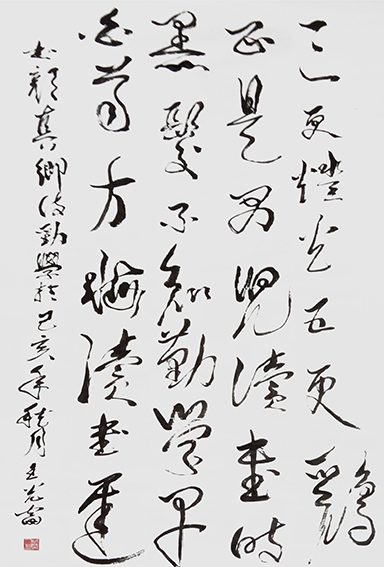 三更燈火五更鷄
正是男兒讀書時
黑髮不知勤學早
白首方悔讀書遲
書顏真卿詩勸學於己亥年月王